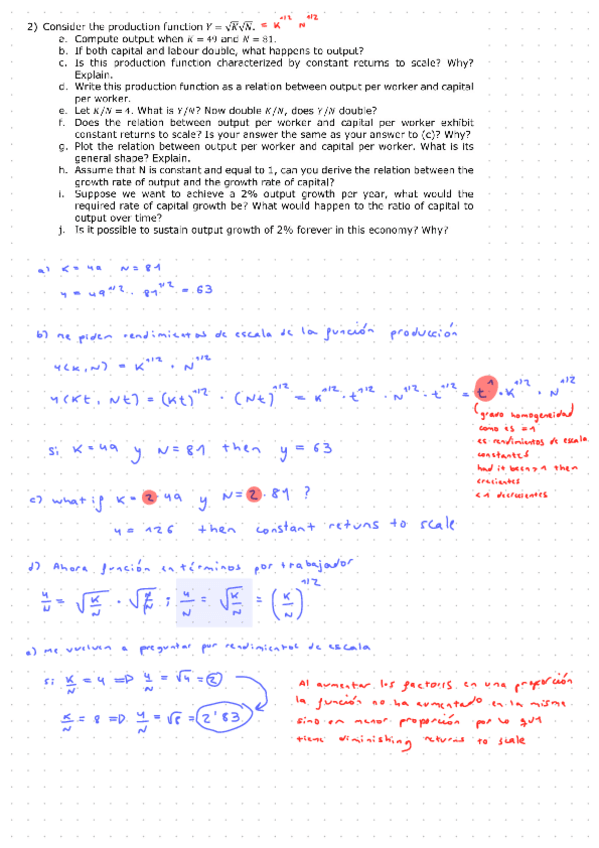 2) Consider the production function Y = √K√N. = K^1/2 N^1/2
a. Compute output when K = 49 and N = 81.
b. If both capital and labour double, what happens to output?
c. Is this production function characterized by constant returns to scale? Why?
Explain.
d. Write this production function as a relation between output per worker and capital
per worker.
e. Let K/N = 4. What is Y/N? Now double K/N, does Y/N double?
f. Does the relation between output per worker and capital per worker exhibit
constant returns to scale? Is your answer the same as your answer to (c)? Why?
g. Plot the relation between output per worker and capital per worker. What is its
general shape? Explain.
h. Assume that N is constant and equal to 1, can you derive the relation between the
growth rate of output and the growth rate of capital?
i. Suppose we want to achieve a 2% output growth per year, what would the
required rate of capital growth be? What would happen to the ratio of capital to
output over time?
j. Is it possible to sustain output growth of 2% forever in this economy? Why?
a) K = 49 N = 81
Y = 49^1/2 · 81^1/2 = 63
b) me piden rendimientos de escala de la función producción
Y(K,N) = K^1/2 · N^1/2
Y(Kt, Nt) = (Kt)^1/2 · (Nt)^1/2 = K^1/2 · t^1/2 · N^1/2 · t^1/2 = t^1 · K^1/2 · N^1/2
(grado homogeneidad
como is = 1
es rendimientos de escala
constantes
had it been > 1 then
crecientes
< 1 decrecientes
si K = 49 y N = 81 then y = 63
c) what if K = 2 · 49 y N = 2 · 81 ?
Y = 126 then constant retuns to scale
d) Ahora función en términos por trabajador
Y/N = √K/N · √N/N ; Y/N = √K/N = (K/N)^1/2
e) me vuelven a preguntar por rendimientos de escala
si K/N = 4 => Y/N = √4 = 2
K/N = 8 => Y/N = √8 = 2'83
Al aumentar los factores en una proporción
la función no ha aumentado en la misma
sino en menor proporción por lo que
tiene diminishing returns to scale